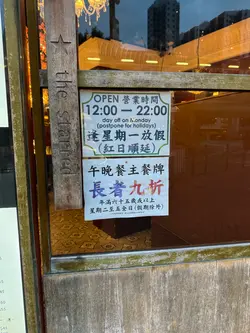 OPEN 營業時間
12:00 — 22:00
day off on Monday
(postpone for holidays)
逢星期一放假
(紅日順延)
午晚餐主餐牌
長者九折
年滿六十五歲或以上
星期二至五全日(假期除外)
★ the